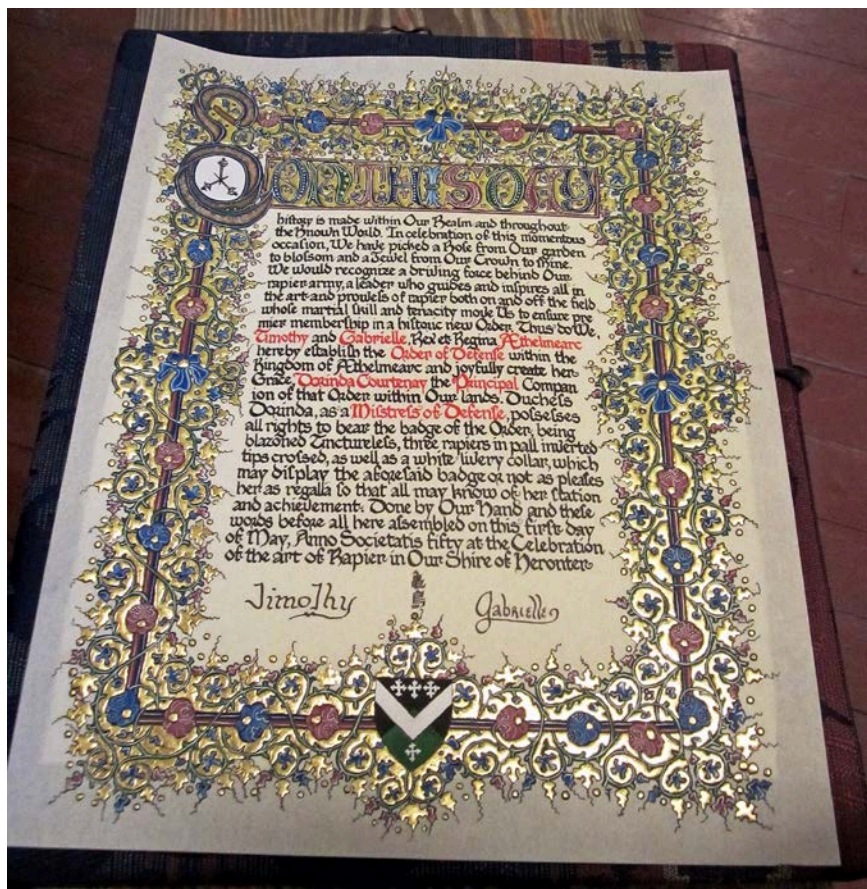 ON THIS DAY
history is made within Our Realm and throughout
the Known World. In celebration of this momentous
occasion, We have picked a Rose from Our garden
to blossom and a Jewel from Our Crown to shine.
We would recognize a driving force behind Our
rapier army, a leader who guides and inspires all in
the art and prowess of rapier both on and off the field
whose martial skill and tenacity move Us to ensure pre
mier membership in a historic new Order. Thus do We
Timothy and Gabrielle, Rex et Regina Æthelmearc
hereby establish the Order of Defense within the
Kingdom of Æthelmearc and joyfully create her
Grace, Dorinda Courtenay the Principal Compan
ion of that Order within Our lands. Duchess
Dorinda, as a Mistress of Defense, possesses
all rights to bear the badge of the Order, being
blazoned Tinctureless, three rapiers in pall inverted
tips crossed, as well as a white livery collar, which
may display the aforesaid badge or not as pleases
her as regalia so that all may know of her station
and achievement. Done by Our Hand and these
words before all here assembled on this first day
of May, Anno Societatis fifty at the Celebration
of the art of Rapier in Our Shire of Heronter
Timothy Gabrielle